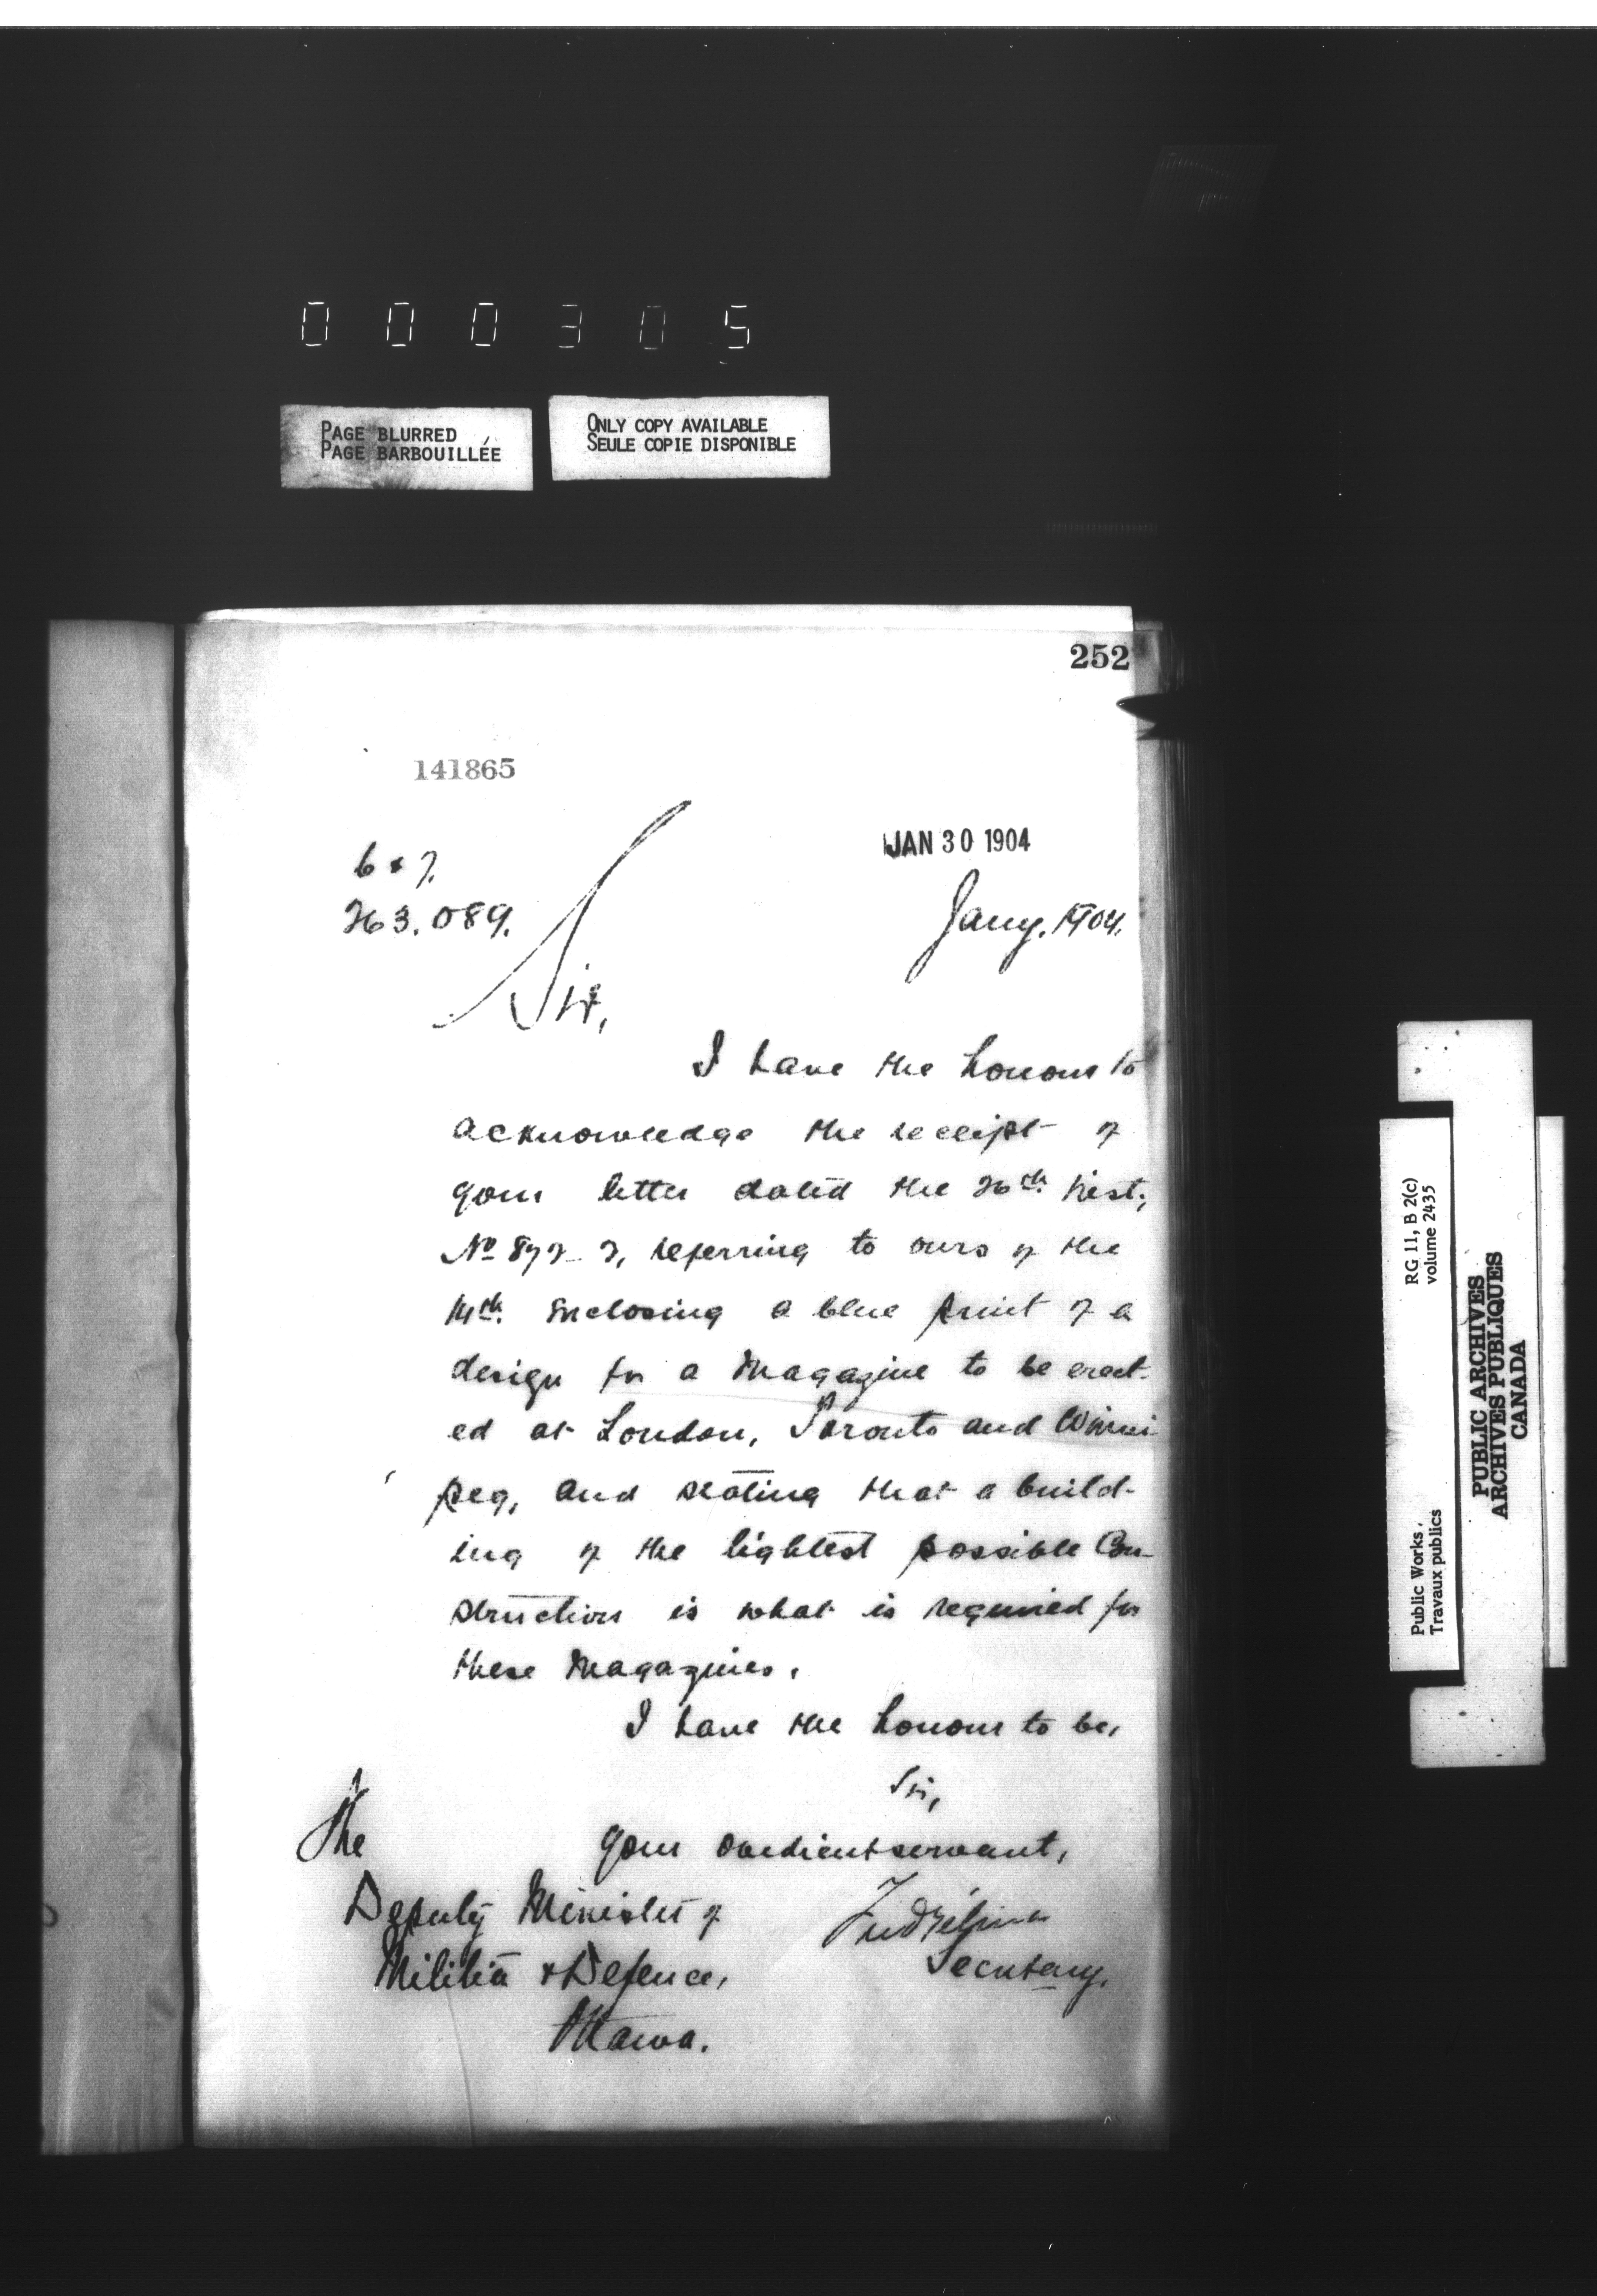 000305
PAGE BLURRED
PAGE BARBOUILLÉE
ONLY COPY AVAILABLE
SEULE COPIE DISPONIBLE
252
141865
JAN 30 1904
6 & 7.
263.089.
Jany. 1904.
Sir,
I have the honour to
acknowledge the receipt of
your letter dated the 26th. inst.,
No referring to ours of the
14th. enclosing a blue print of a
design for a Magazine to be erect-
ed at London, Toronto and Winni
peg, and stating that a build-
ing of the lightest possible Con-
struction is what is required for
these Magazines.
I have the honour to be,
Sir,
The
your obedient servant,
Deputy Minister of
Secretary.
Militia & Defence,
Ottawa.
RG 11, B 2(c)
volume 2435
Public Works,
Travaux publics
PUBLIC ARCHIVES
ARCHIVES PUBLIQUES
CANADA